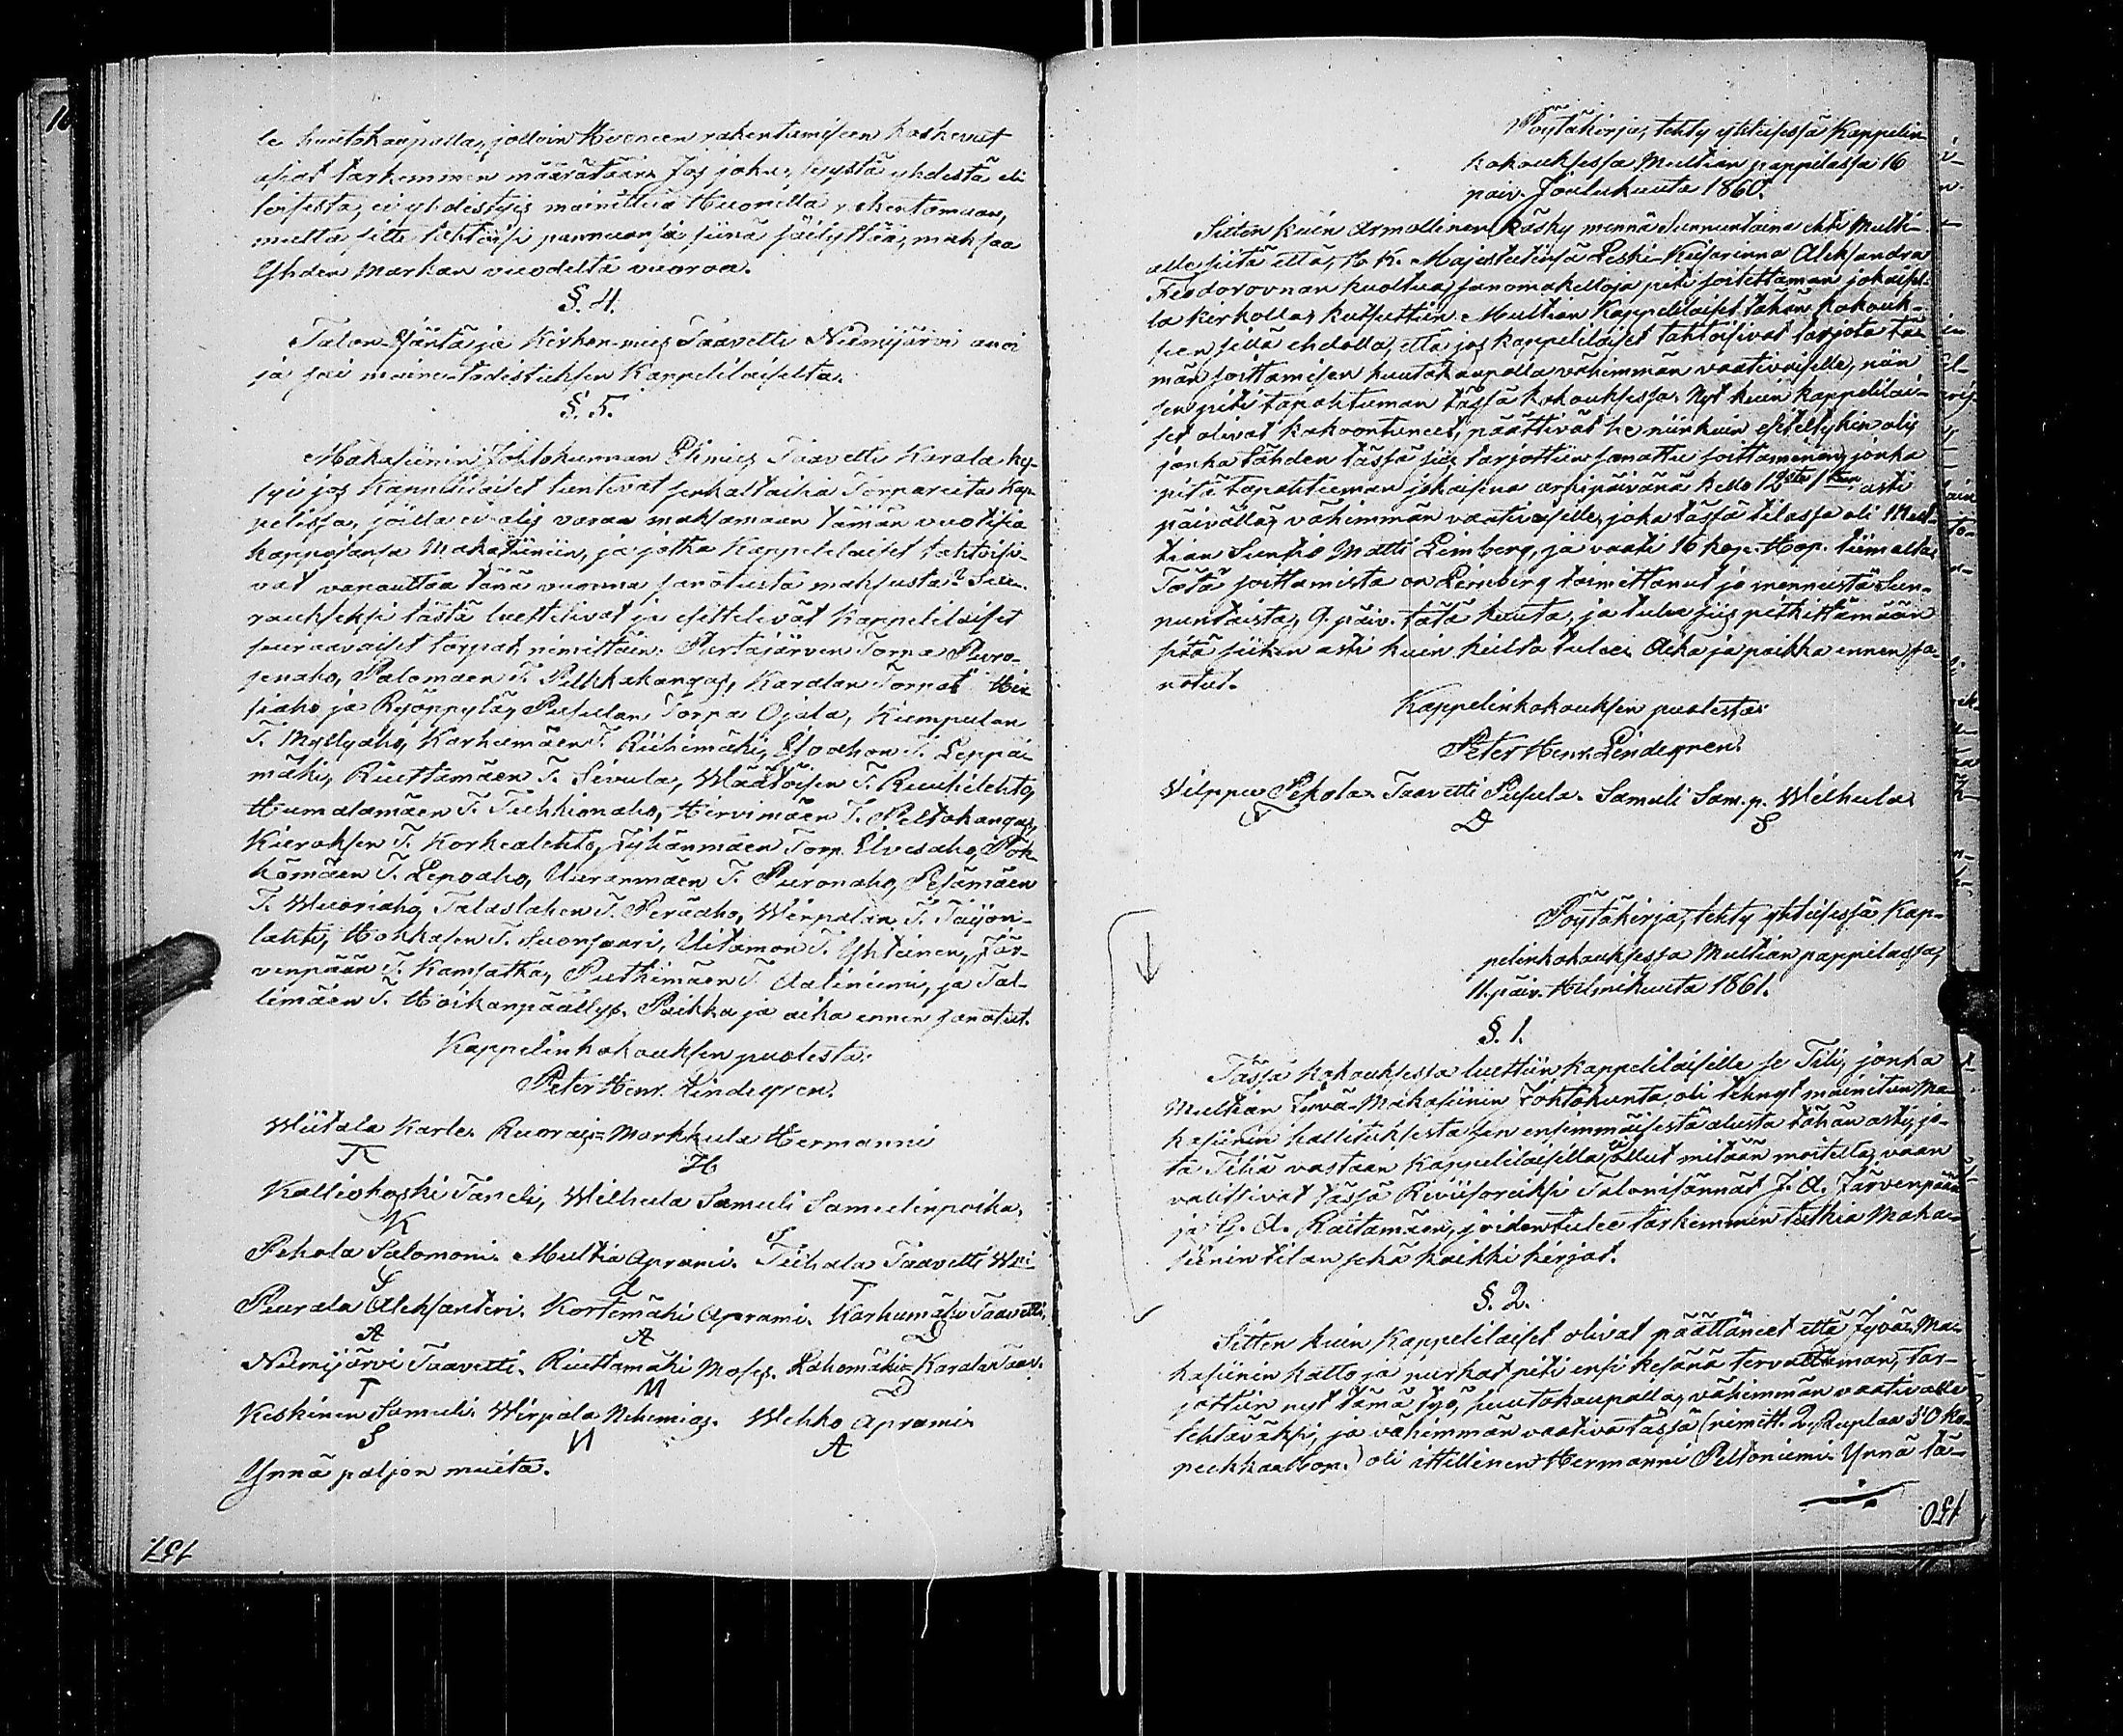 le huutokaupalla, jolloin Huoneen rakentamiseen koskevat
asiat tarkemmin määrätään. Jos joku, syystä yhdestä eli
toisesta, ei yhdestyis mainittua Huonetta rakentamaan,
mutta sitte tahtoisi pannuansa siinä säilyttää, maksaa
Yhden Markan vuodelta vuoroa.
§. 4.
Talon-Isäntä ja Kirkon-mies Taavetti Niemijärvi anoi
ja sai maine-todistuksen Kappelilaisilta.
§. 5.
Makasiinin Johtokunnan Esimies Taavetti Karala ky-
syi jos Kappelilaiset tuntevat senkaltaisia Torpareita Kap-
pelissa, joilla ei olis varaa maksamaan tämän vuotisia
kappojansa Makasiiniin, ja jotka Kappelilaiset tahtoisi-
vat vapauttaa tänä vuonna sanotusta maksusta? Seu-
raukseksi tästä luettelivat ja esittelivät Kappelilaiset
seuraavaiset torpat, nimittäin: Sertajärven Torpa Puro-
senaho, Palomäen T. Pelkkakangas, Karalan Torpat Hie-
siaho ja Ryöppylä, Pusulan Torpa Ojala, Kumpulan
T. Myllyaho, Karhumäen T. Riihimäki, Isoahon T. Leppä-
mäki, Riuttamäen T. Sivula, Wäätäisen T. Ruuhilehto,
Humalamäen T. Tuhkionaho, Hirvimäen T. Peltokangas,
Kieroksen T. Korkealehto, Jyhänmäen Torp. Elvesaho, Pök-
kömäen T. Lepoaho, Uuranmäen T. Puronaho, Pesämäen
T. Wuoriaho, Talaslahen T. Peräaho, Wirpalan T. Taijon-
lahti, Hokkasen T. Suonsaari, Uitamon T. Yhteinen, Jär-
venpään T. Kamsatka, Putkimäen T. Aaliniemi, ja Tal-
limäen T. Hoikanpäällys. Paikka ja aika ennen sanotut.
Kappelinkokouksen puolesta:
Peter Henr. Lindegren.
Wiitala Karle. Ruoras-Markkula Hermanni
K H
Kalliokoski Taneli, Wilhula Samuli Samulinpoika,
K S
Pekola Salomoni. Multia Aprami. Tiihala Taavetti
S A T
Peurala Aleksanteri. Kortemäki Aprami. Karhumäki Taavetti.
A A D
Niemijärvi Taavetti. Riuttamäki Moses. Lahomäki-Karala Taav.
T M D
Keskinen Samuli. Wirpala Nehemias. Wehko Aprami.
S N A
Ynnä paljon muita.
157.
Pöytäkirja, tehty yhteisessä Kappelin
kokouksessa Multian pappilassa 16
päiv. Joulukuuta 1860.
Sitten kuin Armollinen Käsky mennä Sunnuntaina ehti Multi-
alle siitä että, H. K. Majesteetinsa Leski-Keisarinna Aleksandra
Feodorovnan kuoltua, sanomakelloja piti soitettaman jokaisel-
la kirkolla, kutsuttiin Multian Kappelilaiset tähän kokouk-
seen sillä ehdolla, että jos kappelilaiset tahtoisivat tarjota tä-
män soittamisen huutokaupalla vähimmän vaativaiselle, niin
sen piti tapahtuman tässä kokouksessa. Nyt kuin kappelilai-
set olivat kokoontuneet, päättivät he niinkuin esiteltykin olis
jonka tähden tässä siis tarjottiin sanottu soittaminen, jonka
pitä tapahtuman jokaisena arkipäivänä kello 12sta 1teen asti
päivällä, vähimmän vaativaiselle, joka tässä tilassa oli Mul-
tian Suntio Matti Leinberg, ja vaati 16 kop. Hop. tiimalta.
Tätä soittamista on Leinberg toimittanut jo mennestä Sun-
nuntaista, 9. päiv. tätä kuuta, ja tulee siis pitkittämään
sitä siihen asti kuin kielto tulee. Aika ja paikka ennen sa-
notut.
Kappelinkokouksen puolesta:
Peter Henr. Lindegren.
Vilppu Pekola. Taavetti Pusula. Samuli Sam.p. Wilhula.
D S
Pöytäkirja, tehty yhteisessä Kap-
pelinkokouksessa Multian pappilassa,
11. päiv. Helmikuuta 1861.
§. 1.
Tässä kokouksessa luettiin kappelilaisille se Tili, jonka
Multian Jyvä-Makasiinin Johtokunta, oli tehnyt mainitun Ma-
kasiinin hallituksesta sen ensimmäisestä alusta tähän asti, jo-
ta Tiliä vastaan Kappelilaisilla ei ollut mitään moitella, vaan
valitsivat tässä Reviisoreiksi Talonisännät J. A. Järvenpään
ja G. A. Raitamäen, joiden tulee tarkemmin tutkia Maka-
siinin tilan sekä kaikki kirjat.
§. 2.
Sitten kuin Kappelilaiset olivat päättäneet että Jyvä-Ma-
kasiinin katto ja nurkat piti ensi kesänä tervattaman, tar-
jottiin nyt tämä työ, huutokaupalla, vähimmän vaativalle
tehtäväksi, ja vähimmän vaativa tässä (nimitt. 2. Ruplaa 50 ko-
peekkaa hop.) oli itsellinen Hermanni Peltoniemi. Ynnä tä-
150.